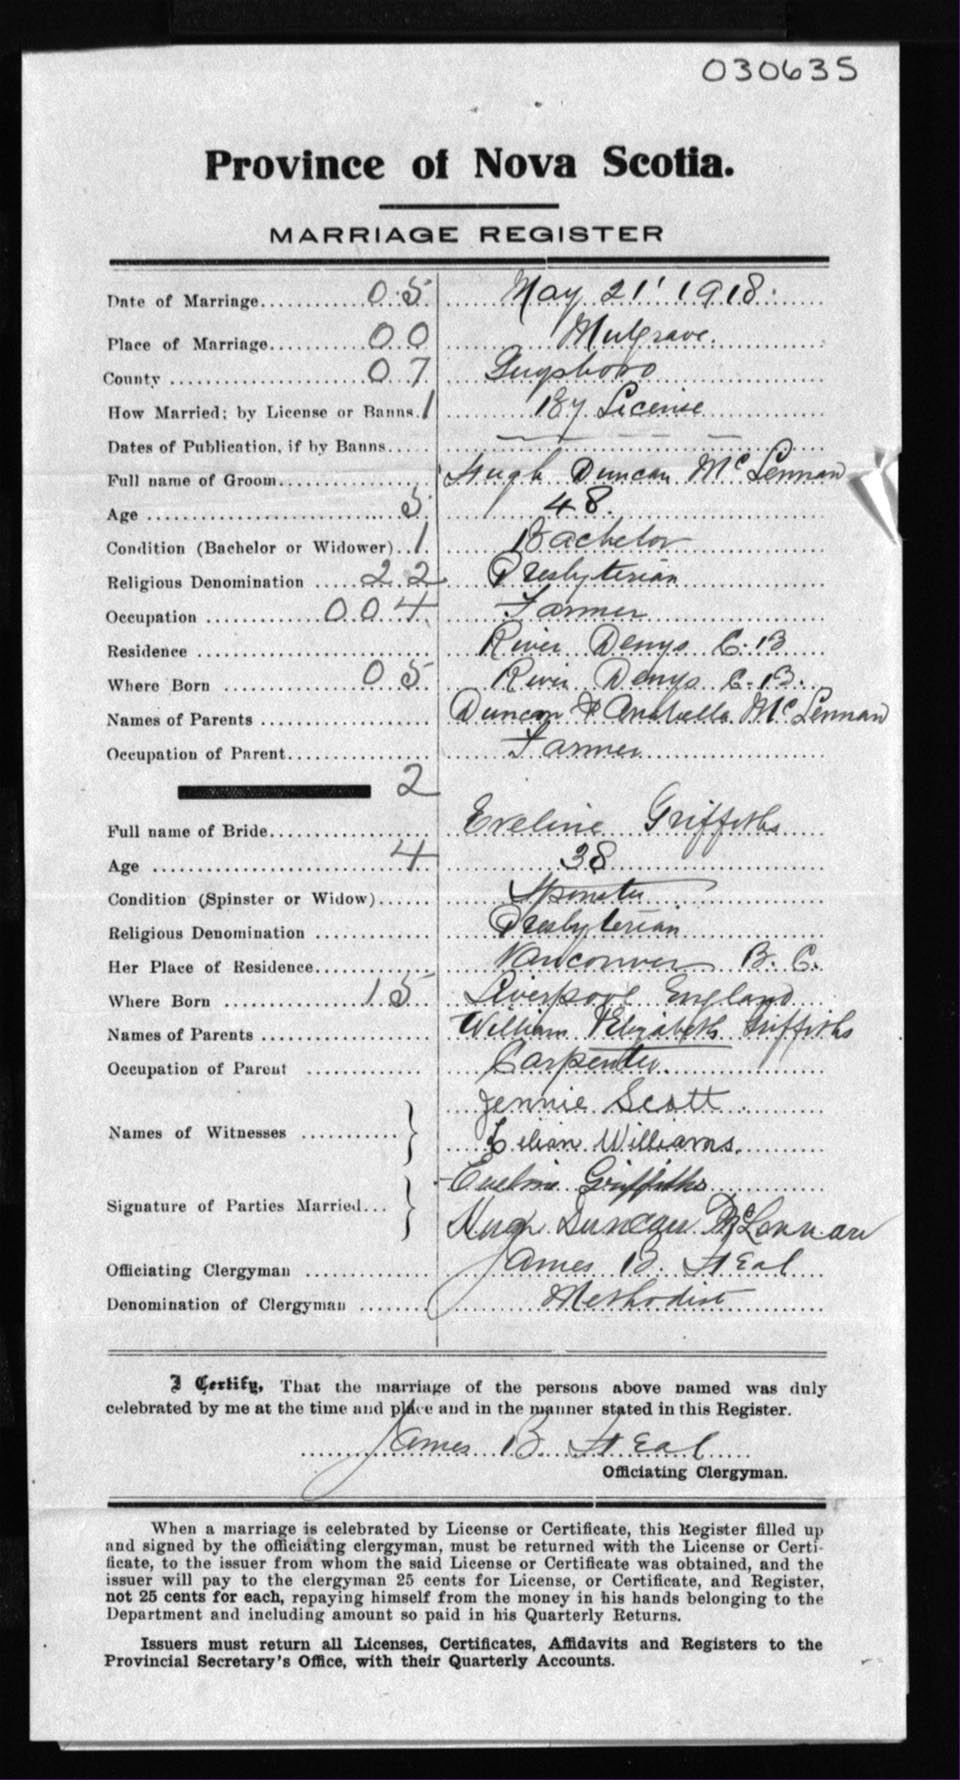 030635
Province of Nova Scotia.
MARRIAGE REGISTER
Date of Marriage............ 05 May 21' 1918.
Place of Marriage........... 00 Mulgrave.
County .................... 07 Guysboro
How Married; by License or Banns. 1 By License
Dates of Publication, if by Banns..... — — — —
Full name of Groom............... Hugh Duncan McLennan
Age ........................ 5 48.
Condition (Bachelor or Widower).. 1. Bachelor
Religious Denomination ..... 22 Presbyterian
Occupation ............ 004 Farmer
Residence ........................ River Denys C.B
Where Born .............. 05 River Denys C.B.
Names of Parents ................. Duncan & Anabella McLennan
Occupation of Parent................ Farmer
2
Full name of Bride................ Eveline Griffiths
Age ........................ 4 38
Condition (Spinster or Widow)...... Spinster
Religious Denomination ............ Presbyterian
Her Place of Residence............. Vancouver B.C.
Where Born .............. 15 Liverpool England
Names of Parents ................. William & Elizabeth Griffiths
Occupation of Parent ............ Carpenter.
Jennie Scott
Names of Witnesses ...........
Lilian Williams.
Eveline Griffiths
Signature of Parties Married...
Hugh Duncan McLennan
Officiating Clergyman ............. James B. Heal
Denomination of Clergyman ........ Methodist
I Certify, That the marriage of the persons above named was duly
celebrated by me at the time and place and in the manner stated in this Register.
James B Heal
Officiating Clergyman.
When a marriage is celebrated by License or Certificate, this Register filled up
and signed by the officiating clergyman, must be returned with the License or Certi-
ficate, to the issuer from whom the said License or Certificate was obtained, and the
issuer will pay to the clergyman 25 cents for License, or Certificate, and Register,
not 25 cents for each, repaying himself from the money in his hands belonging to the
Department and including amount so paid in his Quarterly Returns.
Issuers must return all Licenses, Certificates, Affidavits and Registers to the
Provincial Secretary's Office, with their Quarterly Accounts.